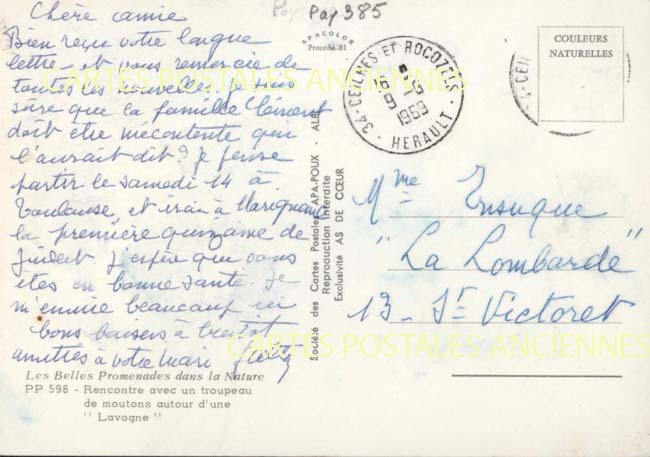 Chère amie
Bien reçu votre longue
lettre et vous remercie de
toutes les nouvelles. Je suis
sûre que la famille Clément
doit être mécontente qui
l'aurait dit? Je pense
partir le samedi 14 à
Toulouse, et irai à Marignane
la première quinzaine de
Juillet j'espère que vous
êtes en bonne santé. Je
m'ennuie beaucoup ici
bons baisers à bientôt
amitiés à votre mari
Les Belles Promenades dans la Nature
PP 598 - Rencontre avec un troupeau
de moutons autour d'une
" Lavogne "
Pay 385
APACOLOR
Procédé 81
Société des Cartes Postales APA-POUX - ALBI
Reproduction Interdite
Exclusivité AS DE CŒUR
34-CEILHES ET ROCOZELS
1969
HERAULT
COULEURS
NATURELLES
Mme Ensuque
"La Lombarde"
13 - St Victoret
CARTES POSTALES ANCIENNES
CARTES POSTALES ANCIENNES